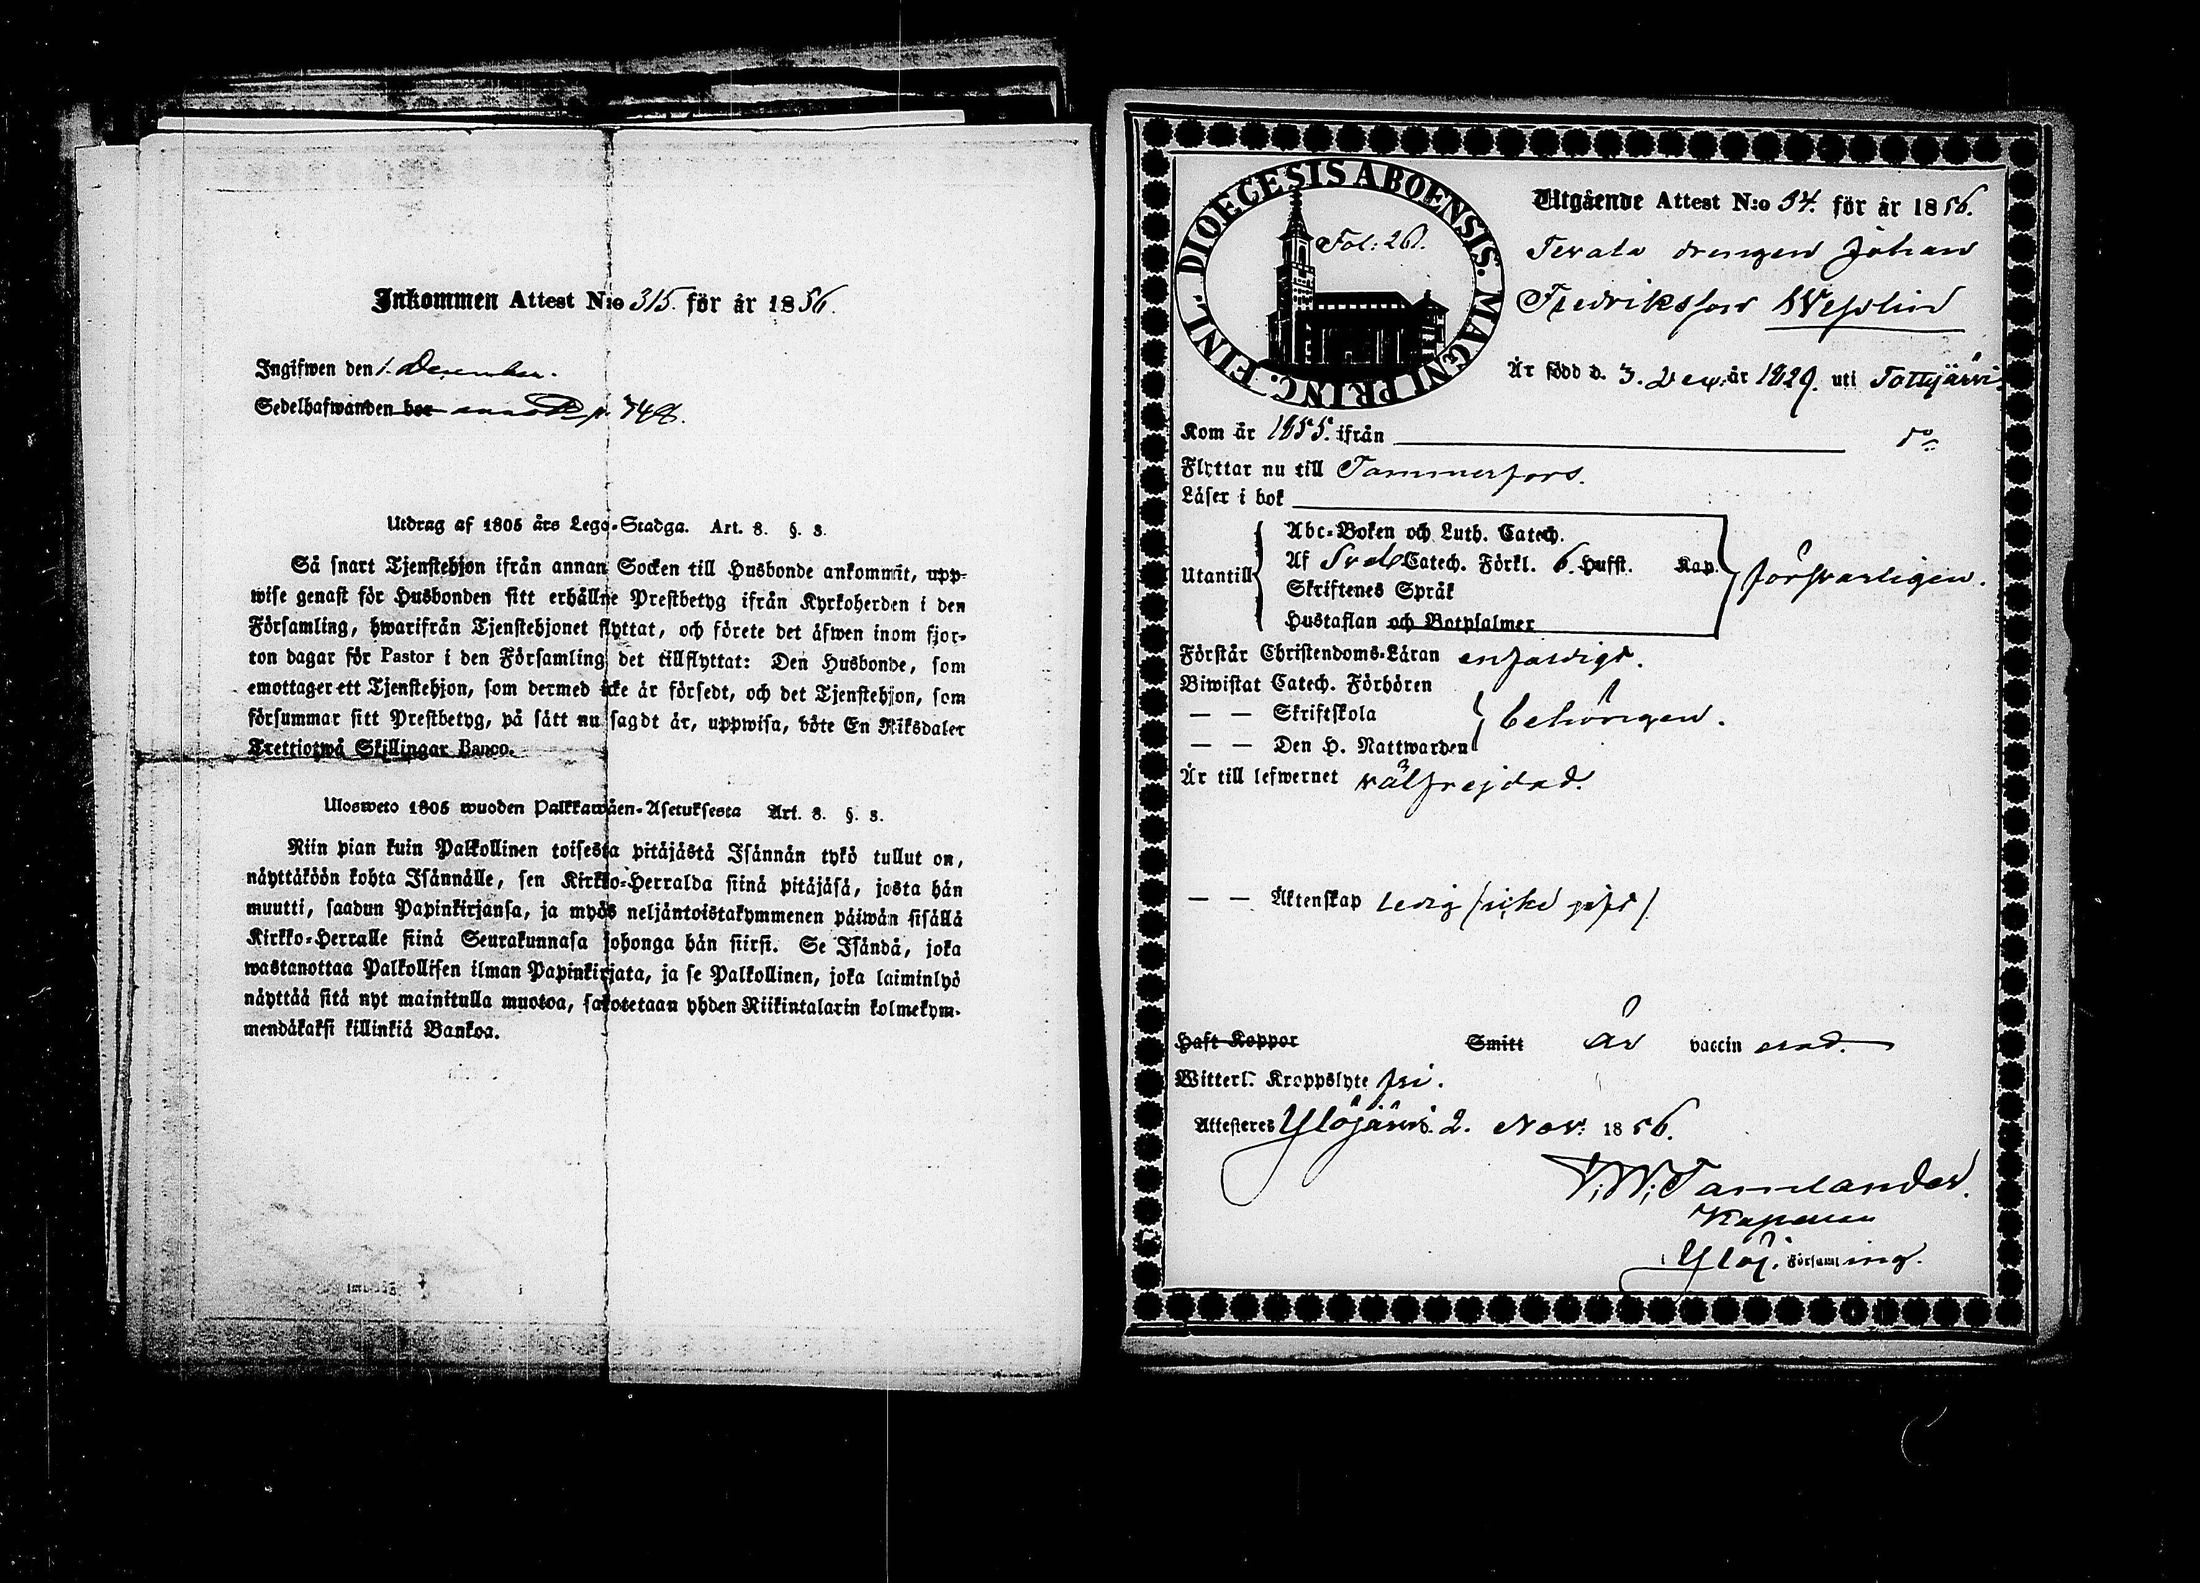 Inkommen Attest N:o 315. för år 1856.
Ingifwen den 1. December.
Sedelhafwanden bor p. 748.
Utdrag af 1805 års Lego-Stadga. Art. 8. §. 3.
Så snart Tjenstehjon ifrån annan Socken till Husbonde ankommit, upp-
wise genast för Husbonden sitt erhållne Prestbetyg ifrån Kyrkoherden i den
Församling, hwarifrån Tjenstehjonet flyttat, och förete det äfwen inom fjor-
ton dagar för Pastor i den Församling det tillflyttat: Den Husbonde, som
emottager ett Tjenstehjon, som dermed icke är försedt, och det Tjenstehjon, som
försummar sitt Prestbetyg, på sätt nu sagdt är, uppwisa, böte En Riksdaler
Trettiotwå Skillingar Banco.
Ulosweto 1805 wuoden Palkkawäen-Asetuksesta Art. 8. §. 3.
Niin pian kuin Palkollinen toisesta pitäjästä Isännän tykö tullut on,
näyttäköön kohta Isännälle, sen Kirkko-Herralda siinä pitäjäsä, josta hän
muutti, saadun Papinkirjansa, ja myös neljäntoistakymmenen päiwän sisällä
Kirkko-Herralle siinä Seurakunnasa johonga hän siirsi. Se Isändä, joka
wastanottaa Palkollisen ilman Papinkirjata, ja se Palkollinen, joka laiminlyö
näyttää sitä nyt mainitulla muotoa, sakotetaan yhden Riikintalarin kolmekym-
mendäkaksi killinkiä Bankoa.
DIOECESIS ABOENSIS. MAGNI PRINC. FINL.
Fol: 261.
Utgående Attest N:o 54. för år 1856.
drengen Johan
Fredriksson Wesslin
Är född d. 3. Dec. år 1829. uti Tottijärvi
Kom år 1855. ifrån do
Flyttar nu till Tammerfors.
Läser i bok
Utantill
Abc-Boken och Luth. Catech.
Af Sveb Catech. Förkl. 6. Hufst. Kap.
Skriftenes Språk
Hustaflan och Botpsalmer
försvarligen.
Förstår Christendoms-Läran enfaldigt.
Biwistat Catech. Förhören
— — Skriftskola
— — Den H. Nattwarden
behörigen.
Är till lefwernet välfrejdad.
— — Äktenskap ledig /icke gift/
Haft Koppor Smitt är vaccin erad.
Witterl. Kroppslyte fri.
Attesteras Ylöjärvi. 2. Nov: 1856.
Tamlander.
Kapellan
Ylöj. Församling.